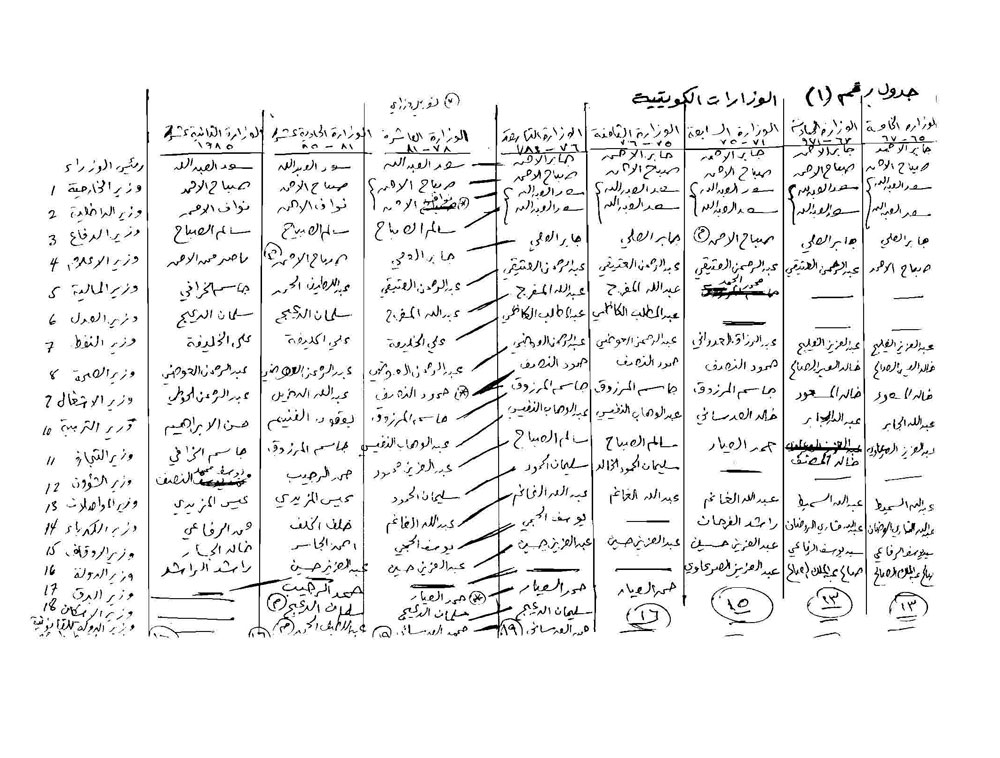 جدول رقم (١) الوزارات الكويتية
الوزارة الخامسة الوزارة السادسة الوزارة السابعة الوزارة الثامنة الوزارة التاسعة الوزارة العاشرة الوزارة الحادية عشرة الوزارة الثانية عشرة
٦٥-٦٧ ٦٧-٩٧١ ٧١-٧٥ ٧٥-٧٦ ٧٦-٧٨ ٧٨-٨١ ٨١-٨٥ ١٩٨٥
جابر الاحمد جابر الاحمد جابر الاحمد جابر الاحمد جابر الاحمد سعد العبدالله سعد العبدالله سعد العبدالله رئيس الوزراء
صباح الاحمد صباح الاحمد صباح الاحمد صباح الاحمد صباح الاحمد صباح الاحمد صباح الاحمد صباح الاحمد وزير الخارجية 1
سعد العبدالله سعد العبدالله سعد العبدالله سعد العبدالله سعد العبدالله نواف الاحمد نواف الاحمد نواف الاحمد وزير الداخلية 2
سعد العبدالله سعد العبدالله سعد العبدالله سعد العبدالله سعد العبدالله سالم الصباح سالم الصباح سالم الصباح وزير الدفاع 3
جابر العلي جابر العلي صباح الاحمد جابر العلي جابر العلي جابر العلي صباح الاحمد ناصر محمد الاحمد وزير الاعلام 4
صباح الاحمد عبدالرحمن العتيقي عبدالرحمن العتيقي عبدالرحمن العتيقي عبدالرحمن العتيقي عبدالرحمن العتيقي عبداللطيف الحمد جاسم الخرافي وزير المالية 5
عبدالله المفرج عبدالله المفرج عبدالله المفرج سلمان الدعيج سلمان الدعيج وزير العدل 6
عبدالمطلب الكاظمي عبدالمطلب الكاظمي علي الخليفة علي الخليفة علي الخليفة وزير النفط 7
عبدالعزيز الفليج عبدالعزيز الفليج عبدالرزاق العدواني عبدالرحمن العوضي عبدالرحمن العوضي عبدالرحمن العوضي عبدالرحمن العوضي عبدالرحمن العوضي وزير الصحة 8
خالد العيسى الصالح خالد العيسى الصالح حمود النصف حمود النصف حمود النصف حمود النصف عبدالله الدخيل عبدالرحمن الحوطي وزير الاشغال 9
خالد المسعود خالد المسعود جاسم المرزوق جاسم المرزوق جاسم المرزوق جاسم المرزوق يعقوب الغنيم حسن الابراهيم وزير التربية 10
عبدالله الجابر عبدالله الجابر خالد العدساني عبدالوهاب النفيسي عبدالوهاب النفيسي عبدالوهاب النفيسي جاسم المرزوق جاسم الخرافي وزير التجارة 11
حمد العيار سالم الصباح سالم الصباح عبدالعزيز محمود حمد الرجيب النصف وزير الشؤون 12
سليمان الحمود الخالد سليمان الحمود سليمان الحمود عيسى المزيدي عيسى المزيدي وزير المواصلات 13
عبدالله السميط عبدالله السميط عبدالله الغانم عبدالله الغانم عبدالله الغانم عبدالله الغانم خلف الخلف محمد الرفاعي وزير الكهرباء 14
راشد الفرحان يوسف الحجي يوسف الحجي احمد الجاسر خالد الجسار وزير الاوقاف 15
سيد يوسف الرفاعي سيد يوسف الرفاعي عبدالعزيز حسين عبدالعزيز حسين عبدالعزيز حسين عبدالعزيز حسين عبدالعزيز حسين راشد الراشد وزير الدولة 16
عبدالعزيز الصرعاوي حمد العيار حمد العيار حمد العيار حمد الرجيب وزير البرق 17
سليمان الدعيج سلمان الدعيج سلمان الدعيج وزير الاسكان 18
محمد العدساني محمد العدساني عبداللطيف الحمد وزير الدولة للقانونية
(١٣) (١٣) (١٥) (١٦) (١٩)